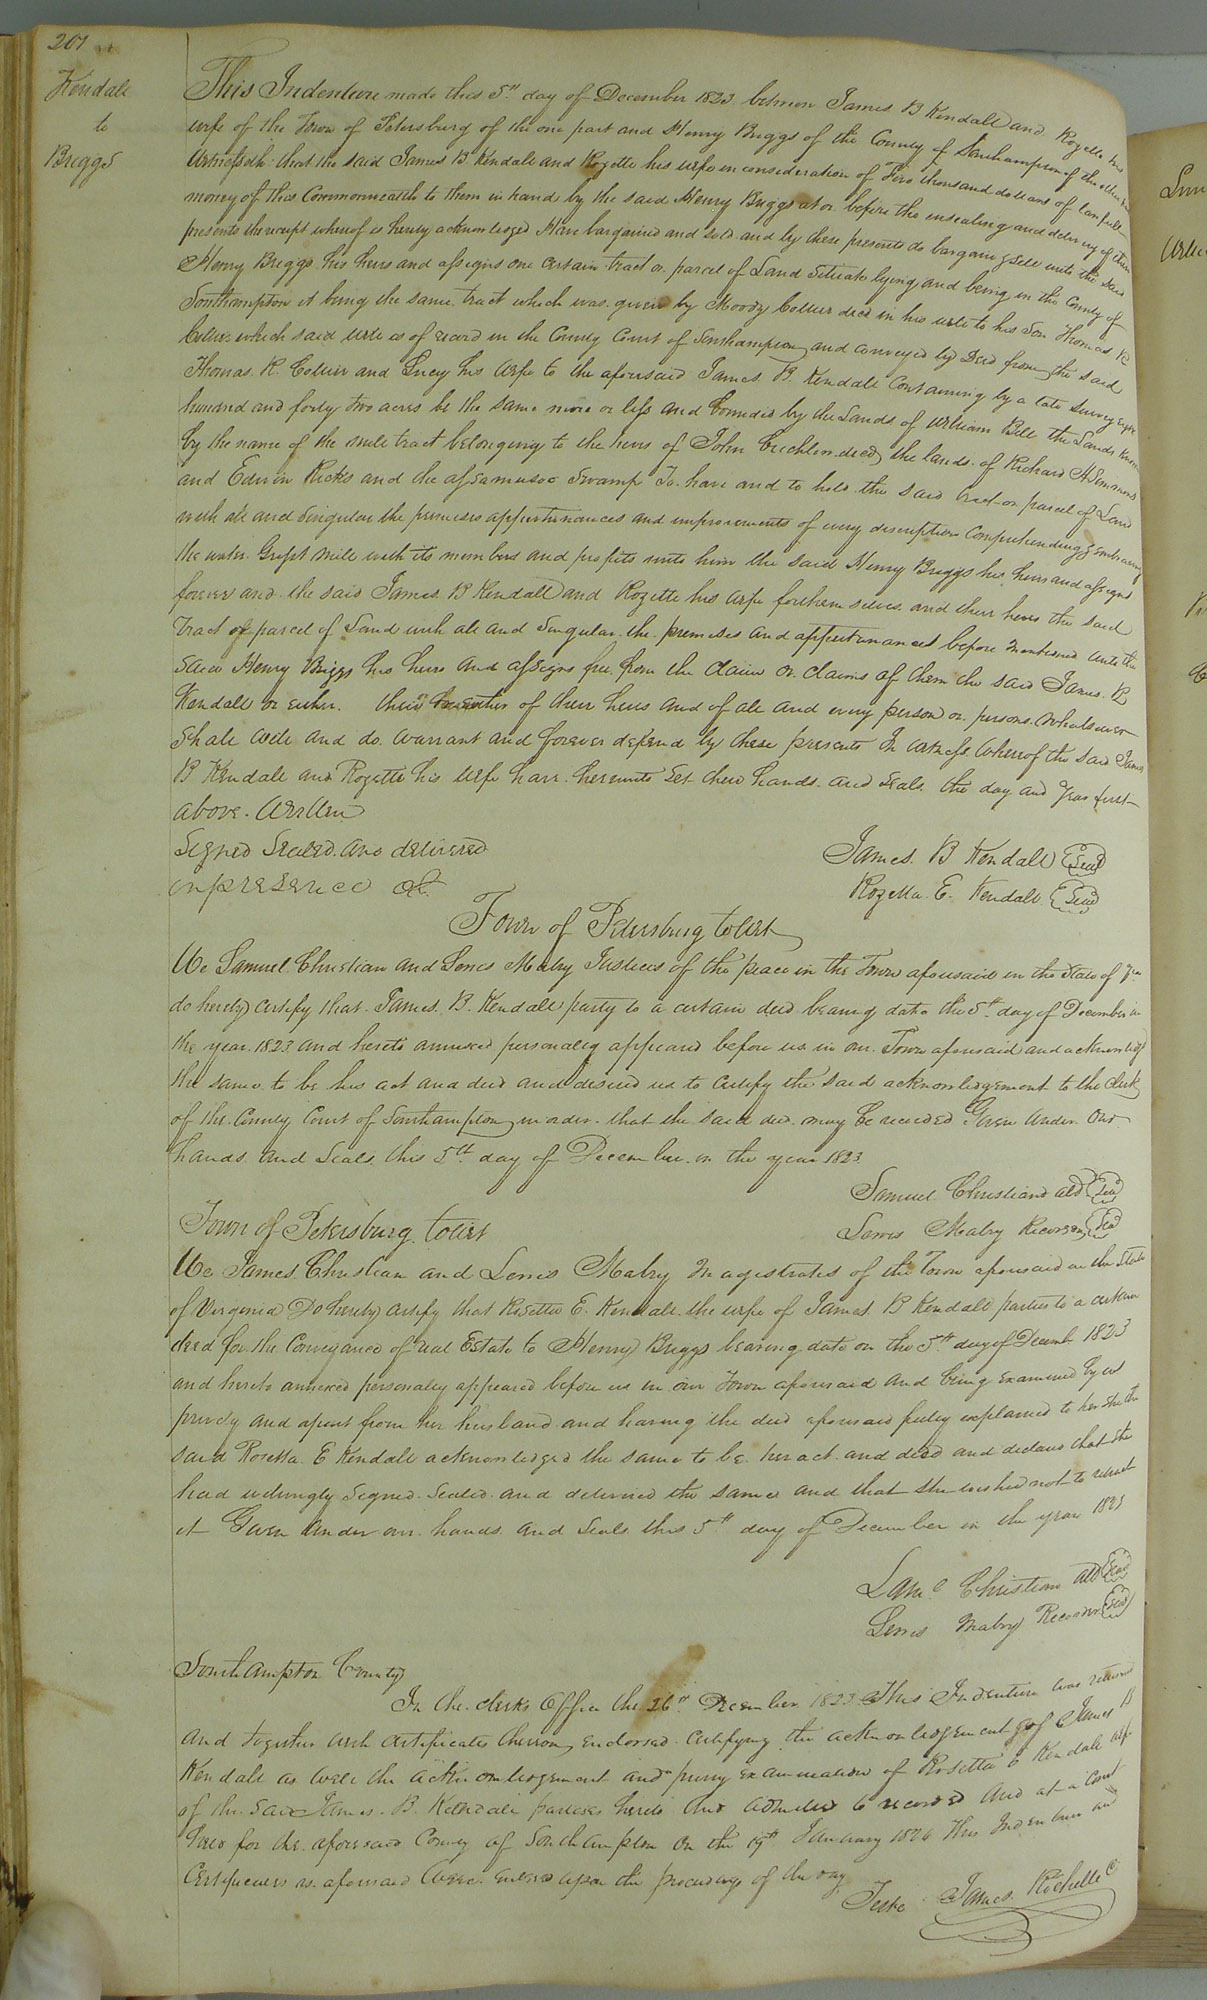 201
Kendall
to
Briggs
This Indenture made this 5th day of December 1823 between James B Kendall and Rozette his
wife of the Town of Petersburg of the one part and Henry Briggs of the County of Southampton of the other part
Witnesseth that the said James B. Kendall and Rozette his wife in consideration of Two thousand dollars of lawful
money of this Commonwealth to them in hand by the said Henry Briggs at or before the ensealing and delivery of these
presents the receipt whereof is hereby acknowledged Have bargained and sold and by these presents do bargain & sell unto the said
Henry Briggs his heirs and assigns one certain tract or parcel of Land situate lying and being in the County of
Southampton it being the same tract which was given by Moody Collier decd in his will to his Son Thomas R
Collier which said will is of record in the County Court of Southampton and conveyed by Deed from the said
Thomas R. Collier and Lucy his wife to the aforesaid James B. Kendall Containing by a late Survey
hundred and forty two acres be the same more or less and bounded by the Lands of William Bell the Lands known
by the name of the mill tract belonging to the heirs of John decd, the lands of Richard H Simmons
and Edwin Ricks and the assamusoc Swamp To have and to hold the said tract or parcel of Land
with all and singular the premises appurtenances and improvements of every discription Comprehending & Embracing
the water Grist Mill with its members and profits unto him the said Henry Briggs his heirs and assigns
forever and the said James B Kendall and Rozette his wife for themselves and their heirs the said
tract of parcel of Land with all and singular the premises and appurtenances before mentioned unto the
said Henry Briggs his heirs and assigns free from the claim or claims of them the said James B
Kendall or either their of their heirs and of all and every person or persons whatsoever
Shall will and do warrant and forever defend by these presents In witness whereof the said James
B Kendall and Rozette his wife have hereunto Set their hands and seals the day and year first
above Written
Signed Sealed and delivered
in presence of
James B Kendall {Seal}
Rozetta E. Kendall {Seal}
Town of Petersburg to wit
We Samuel Christian and Lewis Mabry Justices of the peace in the Town aforesaid in the State of Va
do hereby certify that James B. Kendall party to a certain deed bearing date the 5th day of December in
the year 1823 and hereto annexed personally appeared before us in our Town aforesaid and acknowledged
the same to be his act and deed and desired us to certify the said acknowledgement to the Clerk
of the County Court of Southampton in order that the said deed may be recorded Given under our
hands and Seals this 5th day of December in the year 1823
Samuel Christian ald {Seal}
Lewis Mabry Recorder {Seal}
Town of Petersburg to wit
We James Christian and Lewis Mabry Magistrates of the Town aforesaid in the State
of Virginia Do hereby certify that Rosetta E. Kendall the wife of James B Kendall parties to a certain
deed for the Conveyance of real Estate to Henry Briggs bearing date on the 5th day of Decemb 1823
and hereto annexed personally appeared before us in our Town aforesaid and being examined by us
privily and apart from her husband and having the deed aforesaid fully explained to her She the
said Rosetta E Kendall acknowledged the same to be her act and deed and declared that she
had willingly Signed Sealed and delivered the same and that she wished not to retract
it Given under our hands and Seals this 5th day of December in the year 1823
Saml Christian ald {Seal}
Lewis Mabry Recorder {Seal}
Southampton County
In the clerks Office the 26th December 1823 This Indenture was returned
and together with certificates thereon endorsed certifying the acknowledgement of James B
Kendall as well the acknowledgement and privy examination of Rosetta E Kendall wife
of the said James B. Kendall parties hereto and admitted to record And at a Court
held for the aforesaid County of Southampton on the 19th January 1824 This Indenture and
Certificates as aforesaid were entered upon the proceedings of the day
Teste James Rochelle C